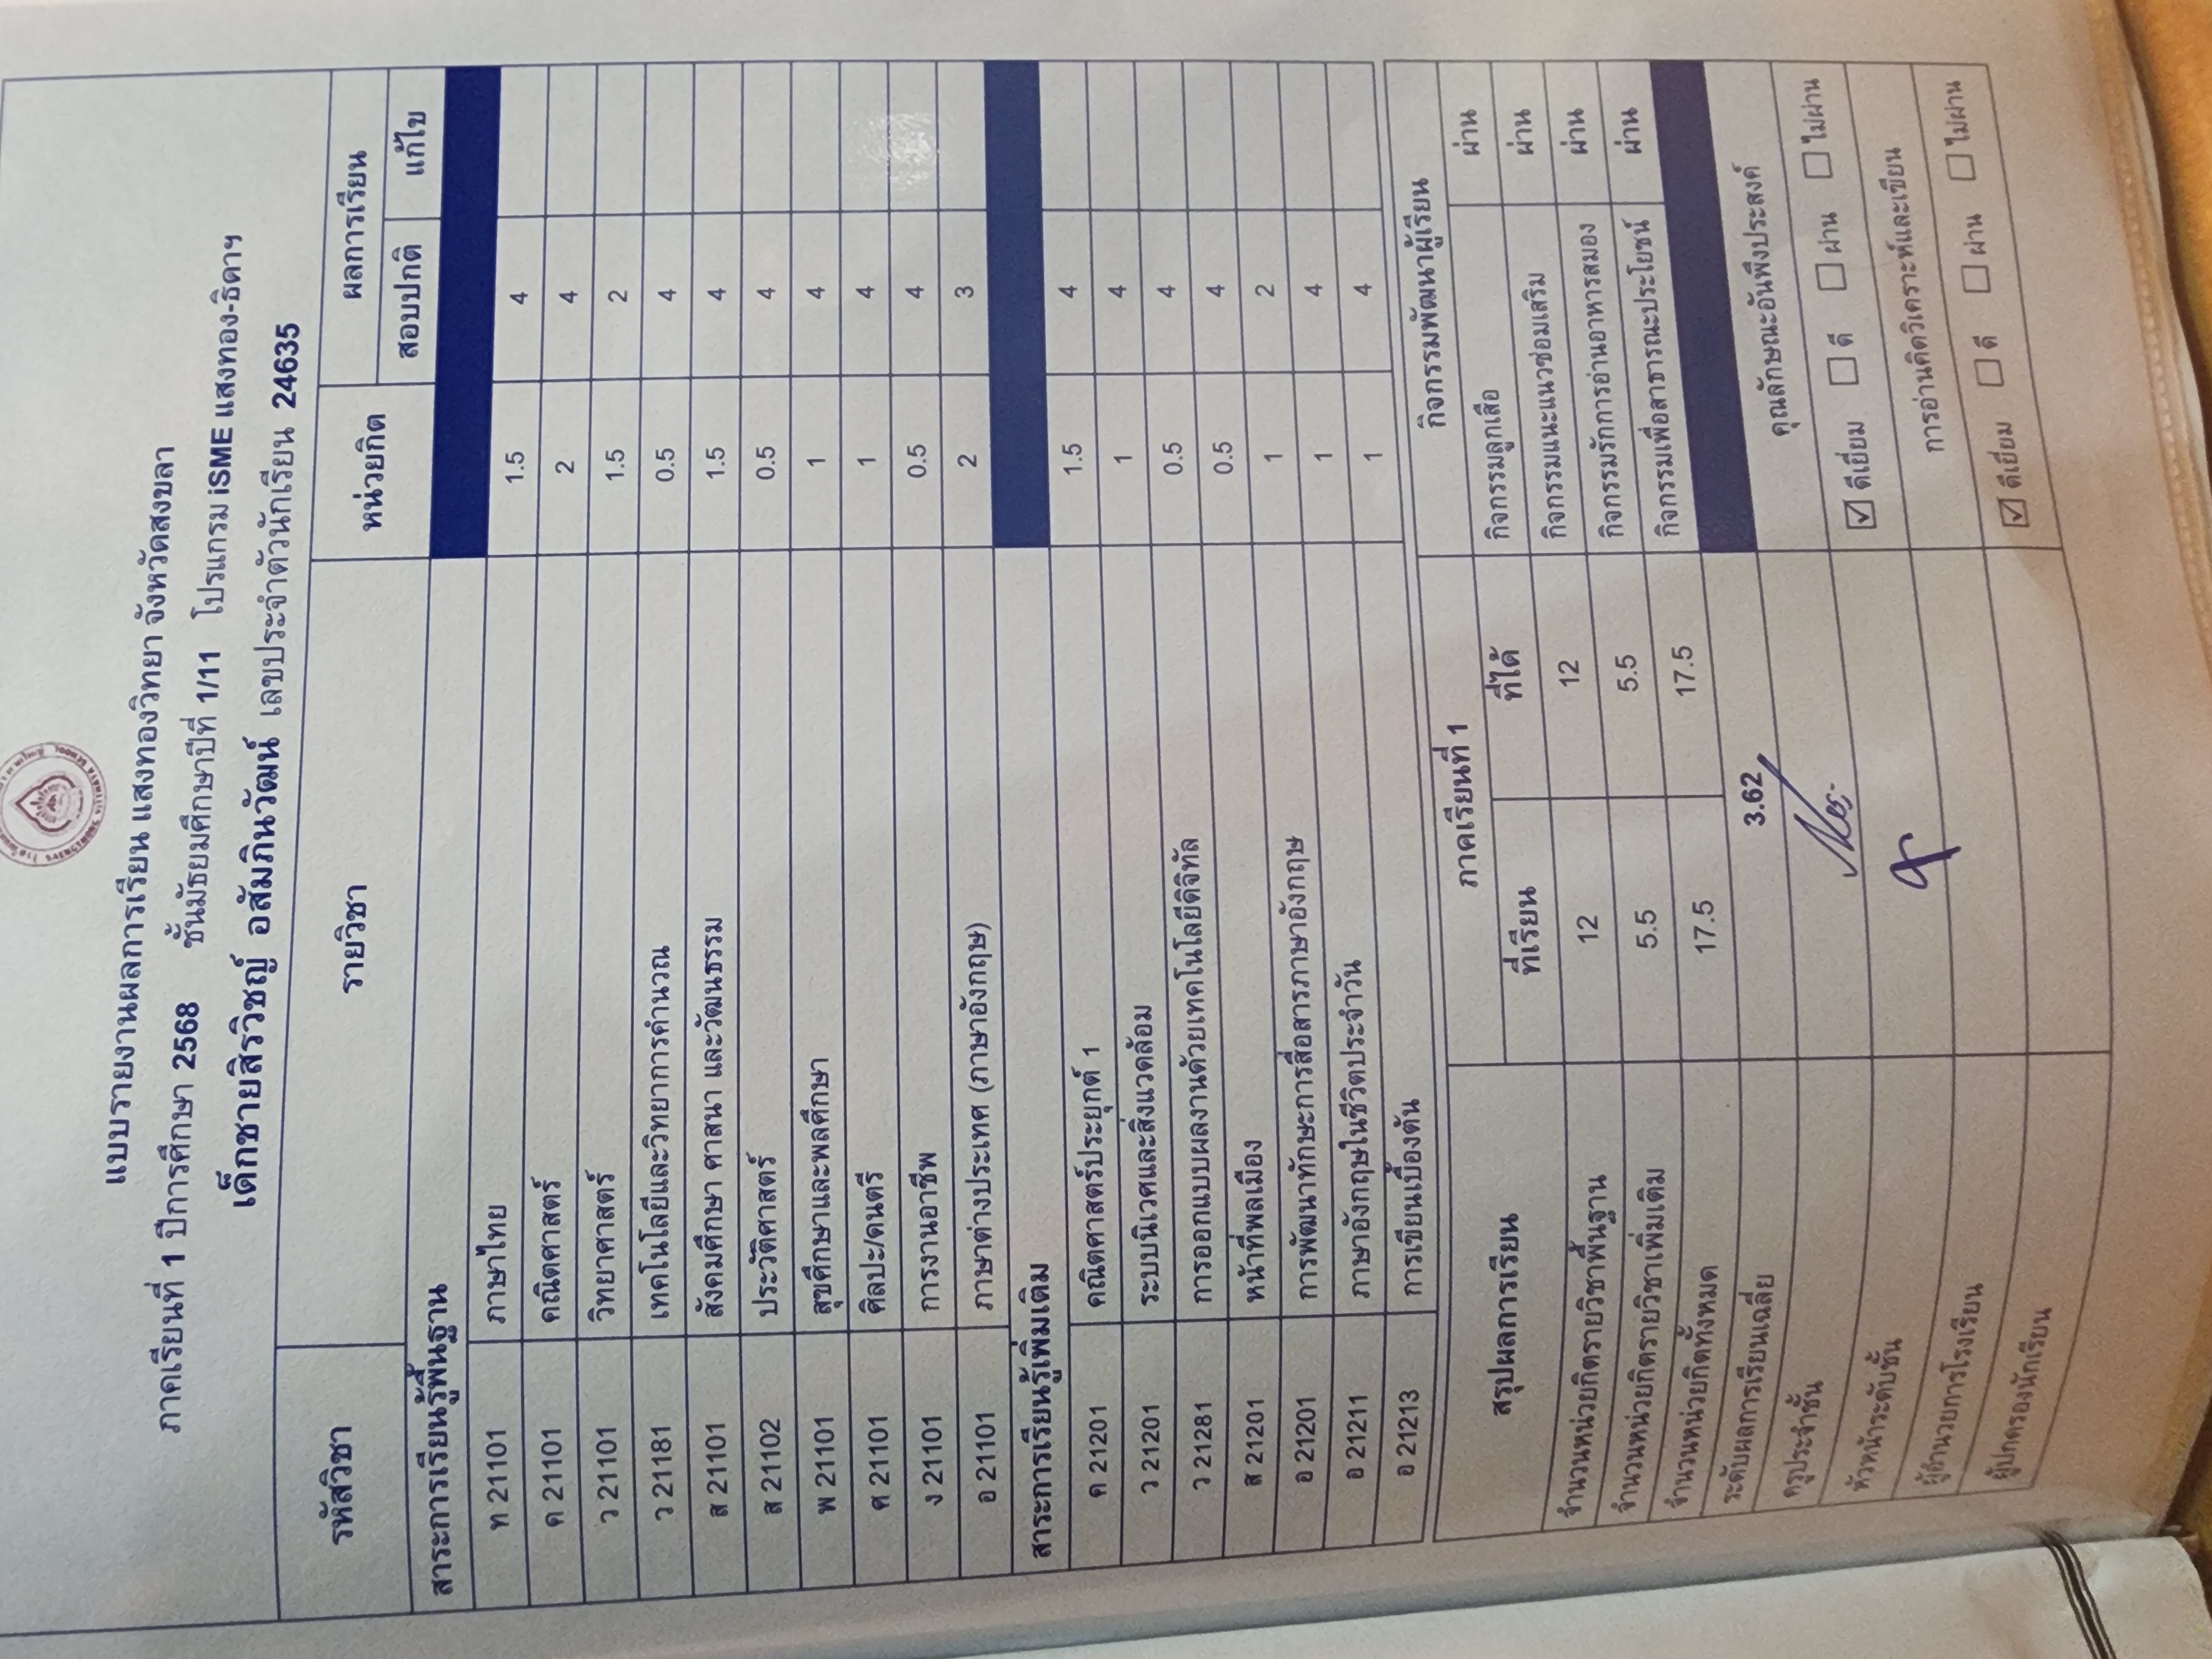 แบบรายงานผลการเรียน แสงทองวิทยา จังหวัดสงขลา
ภาคเรียนที่ 1 ปีการศึกษา 2568 ชั้นมัธยมศึกษาปีที่ 1/11 โปรแกรม iSME แสงทอง-ธิดาฯ
เด็กชายสิรวิชญ์ อสัมภินวัฒน์ เลขประจำตัวนักเรียน 24635
รหัสวิชา รายวิชา หน่วยกิต ผลการเรียน
สอบปกติ แก้ไข
สาระการเรียนรู้พื้นฐาน
ท 21101 ภาษาไทย 1.5 4
ค 21101 คณิตศาสตร์ 2 4
ว 21101 วิทยาศาสตร์ 1.5 2
ว 21181 เทคโนโลยีและวิทยาการคำนวณ 0.5 4
ส 21101 สังคมศึกษา ศาสนา และวัฒนธรรม 1.5 4
ส 21102 ประวัติศาสตร์ 0.5 4
พ 21101 สุขศึกษาและพลศึกษา 1 4
ศ 21101 ศิลปะ/ดนตรี 1 4
ง 21101 การงานอาชีพ 0.5 4
อ 21101 ภาษาต่างประเทศ (ภาษาอังกฤษ) 2 3
สาระการเรียนรู้เพิ่มเติม
ค 21201 คณิตศาสตร์ประยุกต์ 1 1.5 4
ว 21201 ระบบนิเวศและสิ่งแวดล้อม 1 4
ว 21281 การออกแบบผลงานด้วยเทคโนโลยีดิจิทัล 0.5 4
ส 21201 หน้าที่พลเมือง 0.5 4
อ 21201 การพัฒนาทักษะการสื่อสารภาษาอังกฤษ 1 2
อ 21211 ภาษาอังกฤษในชีวิตประจำวัน 1 4
อ 21213 การเขียนเบื้องต้น 1 4
สรุปผลการเรียน ภาคเรียนที่ 1 กิจกรรมพัฒนาผู้เรียน
ที่เรียน ที่ได้ กิจกรรมลูกเสือ ผ่าน
จำนวนหน่วยกิตรายวิชาพื้นฐาน 12 12 กิจกรรมแนะแนวซ่อมเสริม ผ่าน
จำนวนหน่วยกิตรายวิชาเพิ่มเติม 5.5 5.5 กิจกรรมรักการอ่านอาหารสมอง ผ่าน
จำนวนหน่วยกิตทั้งหมด 17.5 17.5 กิจกรรมเพื่อสาธารณะประโยชน์ ผ่าน
ระดับผลการเรียนเฉลี่ย 3.62
ครูประจำชั้น คุณลักษณะอันพึงประสงค์
หัวหน้าระดับชั้น ☑ ดีเยี่ยม ☐ ดี ☐ ผ่าน ☐ ไม่ผ่าน
ผู้อำนวยการโรงเรียน การอ่านคิดวิเคราะห์และเขียน
ผู้ปกครองนักเรียน ☑ ดีเยี่ยม ☐ ดี ☐ ผ่าน ☐ ไม่ผ่าน